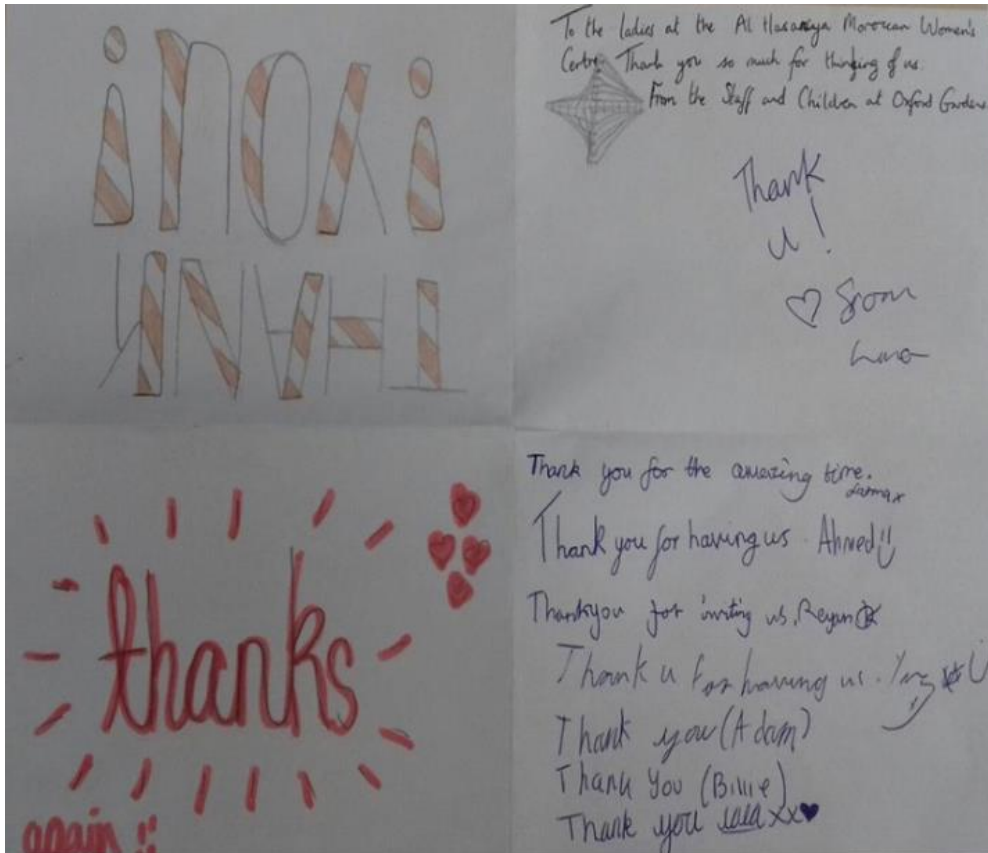 THANK
YOU!!
To the ladies at the Al Hasaniya Moroccan Women's
Centre Thank you so much for thinging of us.
From the Staff and Children at Oxford Gardens
Thank
u!
from
thanks
again
Thank you for the amazing time.
Thank you for having us. Ahmed
Thankyou for inviting us. Reyan
Thank u for having us.
Thank you (Adam)
Thank You (Billie)
Thank you xx